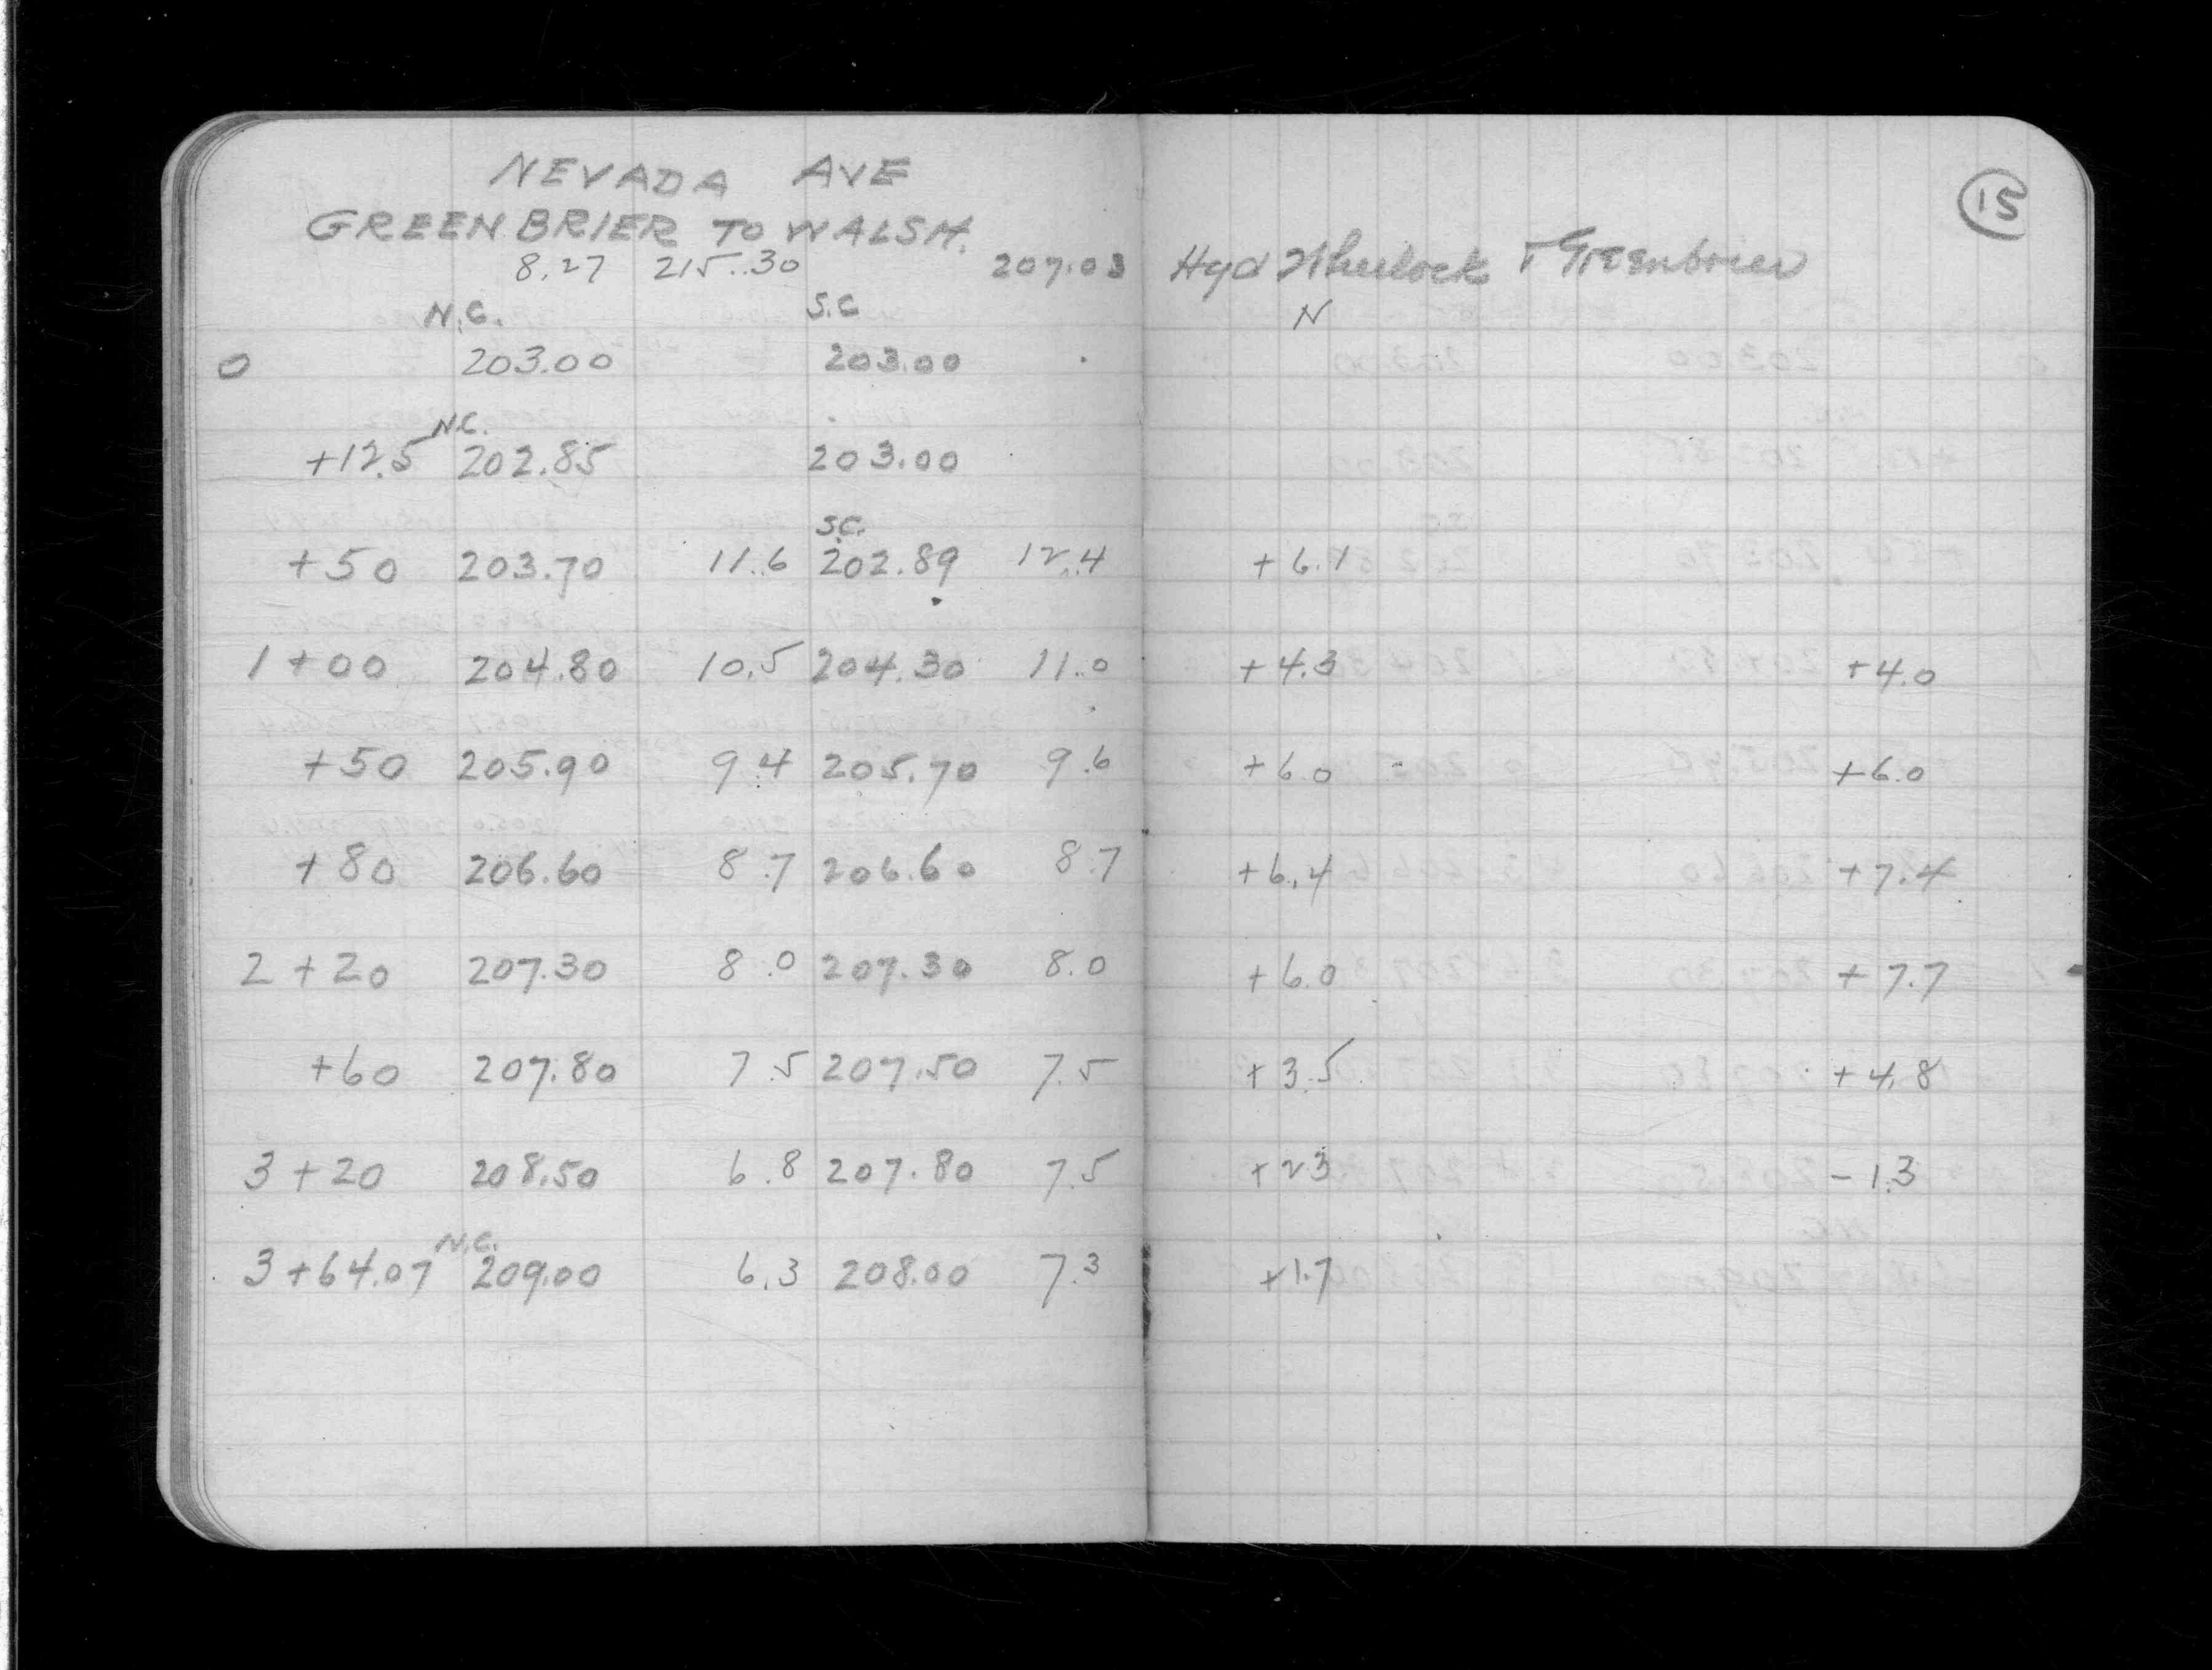 15
NEVADA AVE
GREENBRIER TO WALSH.
8.27 215.30 207.03 Hyd Wheelock + Greenbrier
N.C. S.C N
0 203.00 203.00
N.C.
+12.5 202.85 203.00
S.C.
+50 203.70 11.6 202.89 12.4 +6.1
1+00 204.80 10.5 204.30 11.0 +4.3 +4.0
+50 205.90 9.4 205.70 9.6 +6.0 +6.0
+80 206.60 8.7 206.60 8.7 +6.4 +7.4
2+20 207.30 8.0 207.30 8.0 +6.0 +7.7
+60 207.80 7.5 207.50 7.5 +3.5 +4.8
3+20 208.50 6.8 207.80 7.5 +2.3 -1.3
N.C.
3+64.07 209.00 6.3 208.00 7.3 +1.7